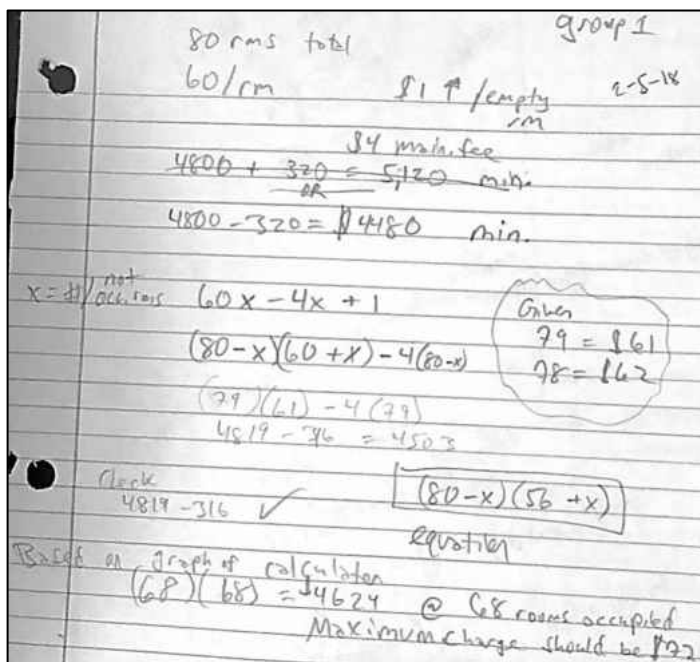 group 1
80 rms total
60/rm
$1 ↑ /empty rm
2-5-18
$4 main. fee
4800 + 320 = 5,120 min.
OR
4800 - 320 = $4480 min.
x = # not occ. rms 60x - 4x + 1
Given
79 = $61
78 = $62
(80-x)(60+x) - 4(80-x)
(79)(61) - 4(79)
4819 - 316 = 4503
Check
4819 - 316 ✓
(80-x)(56+x)
equation
Based on graph of calculator
(68)(68) = $4624 @ 68 rooms occupied
Maximum charge should be $72